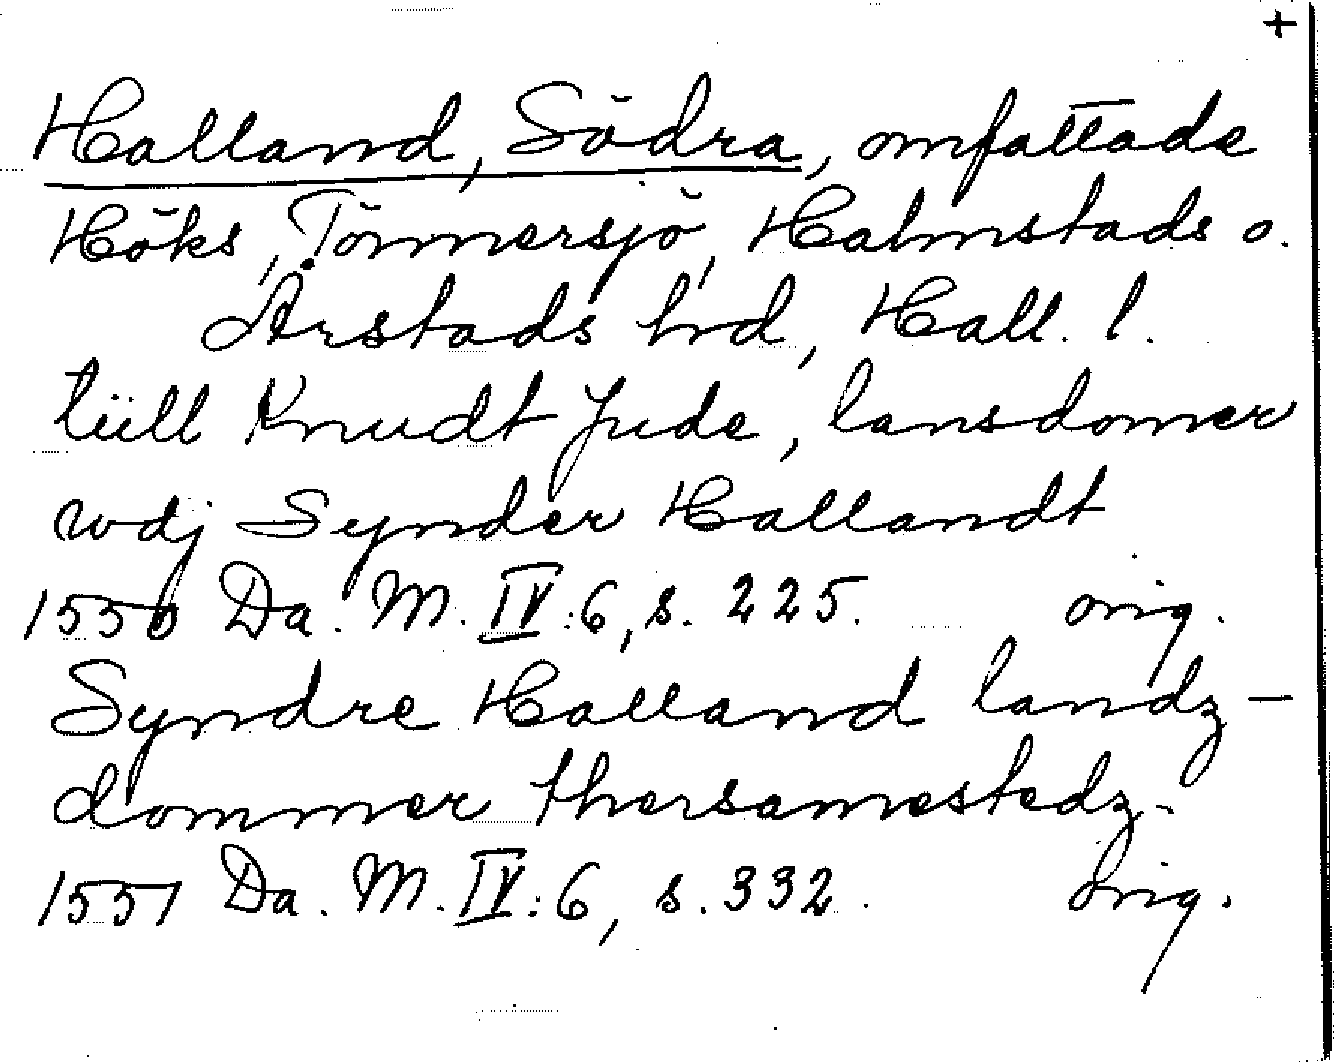 +
Halland, Södra, omfattade
Höks, Tönnersjö, Halmstads o.
Årstads hrd, Hall. l.
tüll Knudt Jude, lansdomer
wdj Synder Hallandt
1550 Da. M. IV:6, s. 225. orig.
Syndre Halland landz-
dommer thersamestedz.
1551 Da. M. IV:6, s. 332. Orig.